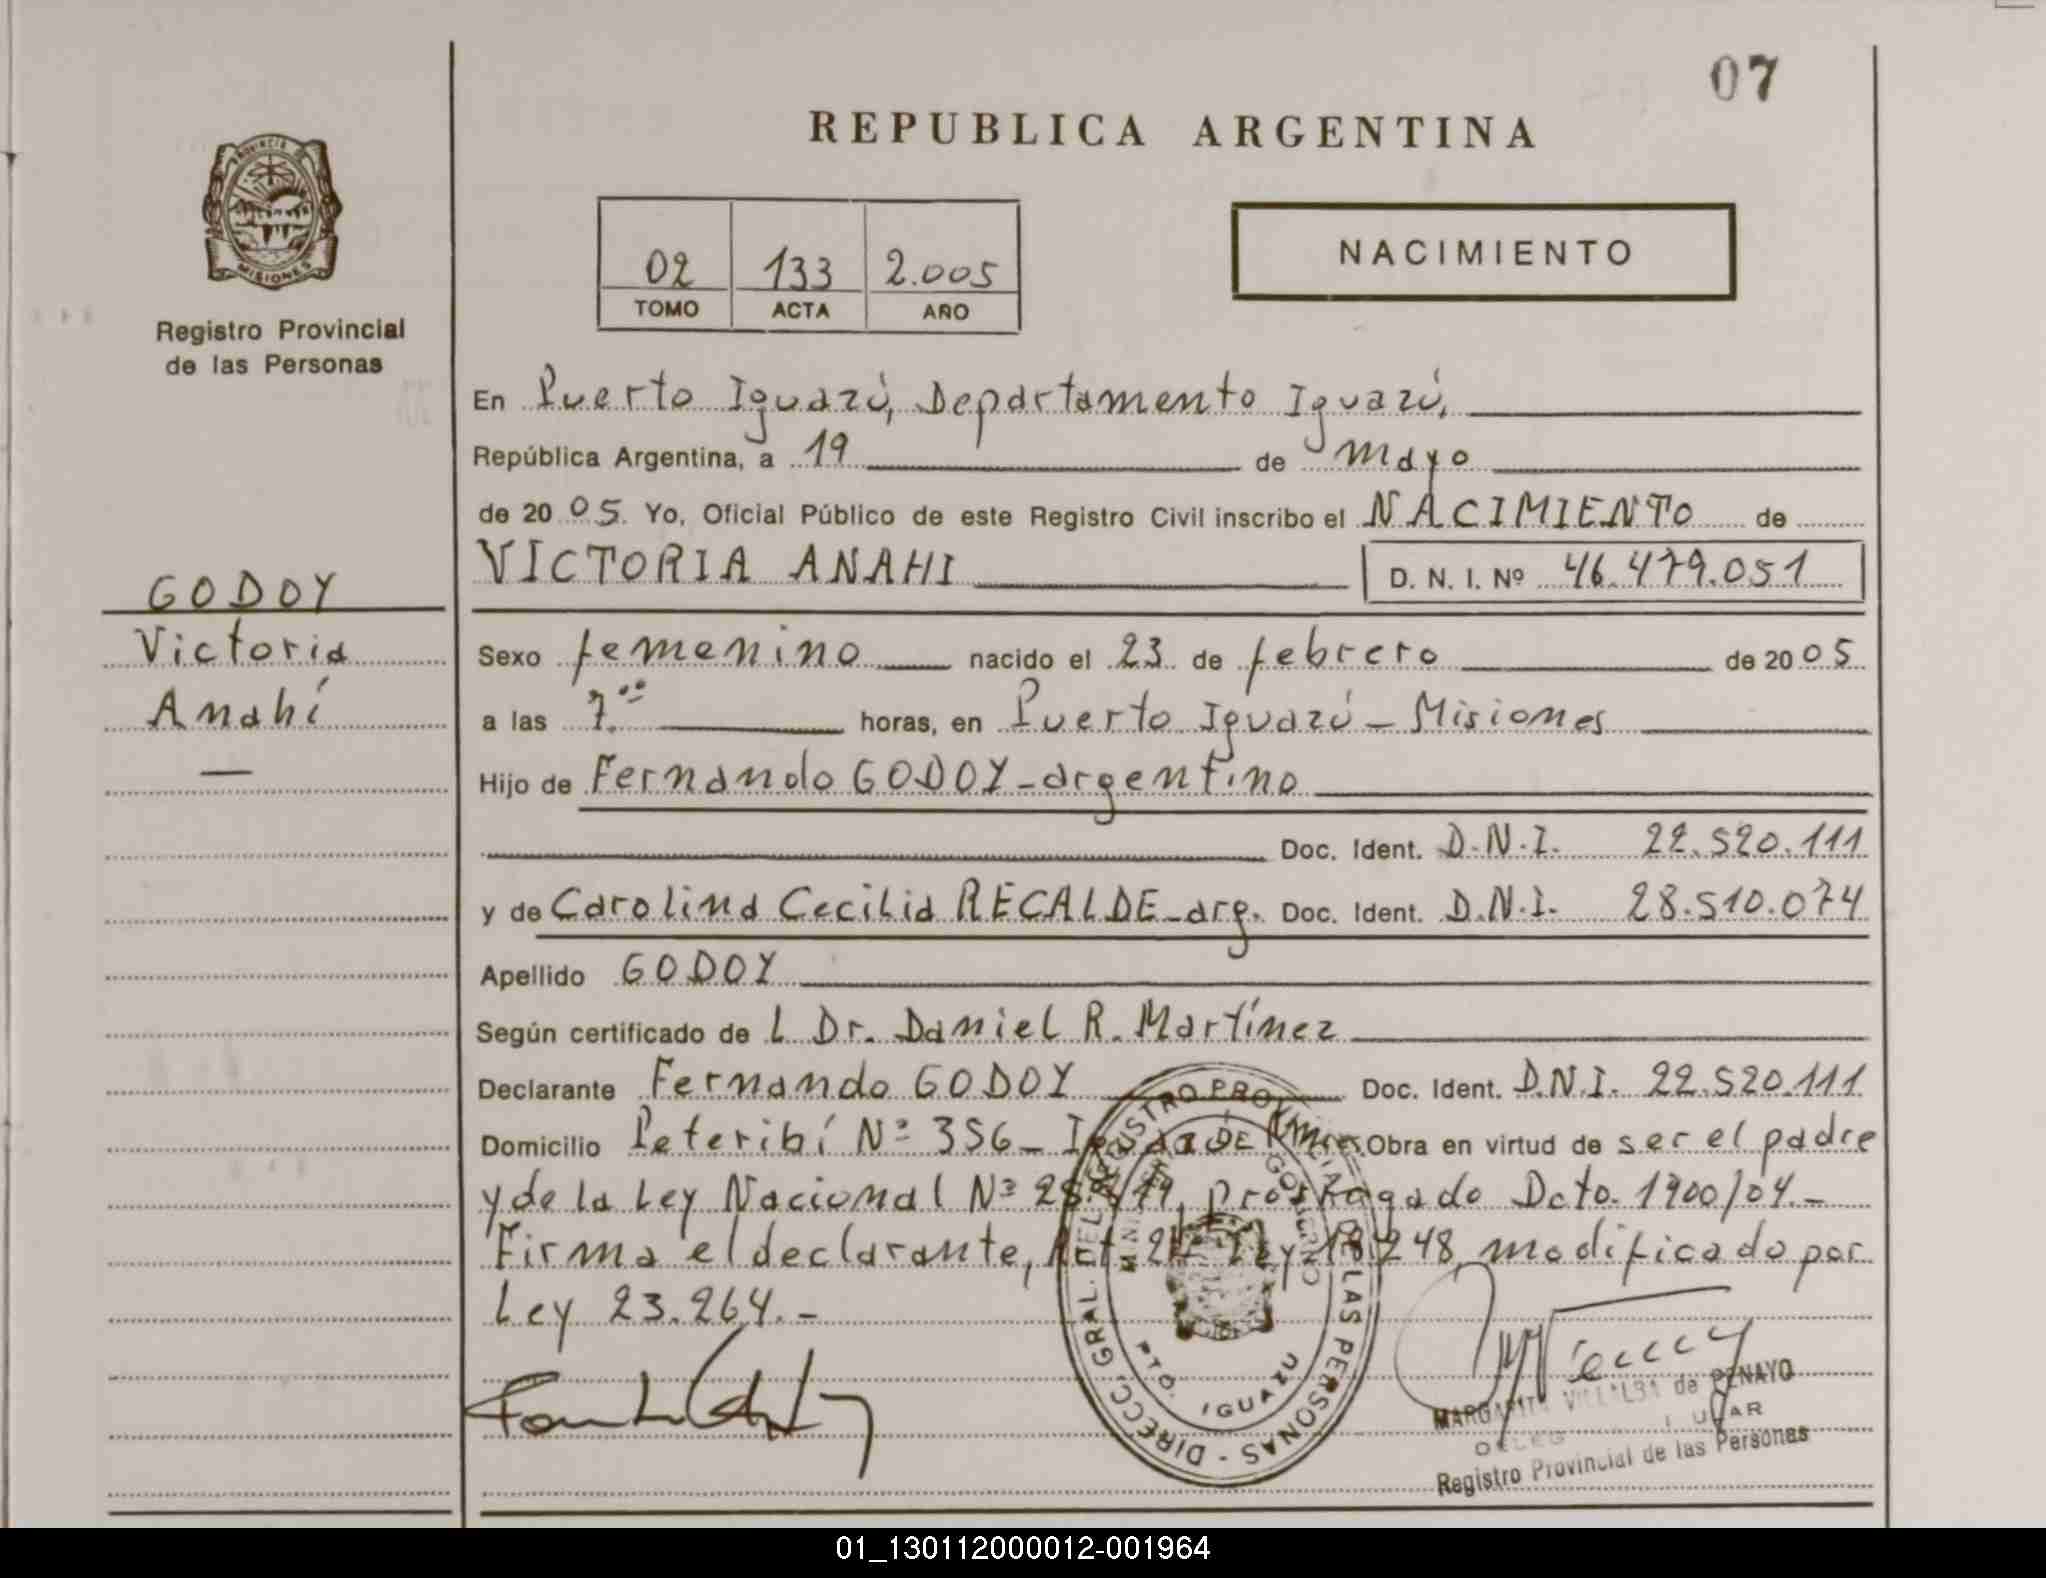 07
REPUBLICA ARGENTINA
PROVINCIA DE
MISIONES
Registro Provincial
de las Personas
02 133 2.005
TOMO ACTA AÑO
NACIMIENTO
GODOY
Victoria
Anahí
—
En Puerto Iguazú, Departamento Iguazú,
República Argentina, a 19 de mayo
de 2005. Yo, Oficial Público de este Registro Civil inscribo el NACIMIENTO de
VICTORIA ANAHI D. N. I. Nº 46.479.051
Sexo femenino nacido el 23 de febrero de 2005
a las 7.00 horas, en Puerto Iguazú - Misiones
Hijo de Fernando GODOY - argentino
Doc. Ident. D.N.I. 22.520.111
y de Carolina Cecilia RECALDE - arg. Doc. Ident. D.N.I. 28.510.074
Apellido GODOY
Según certificado de L Dr. Daniel R. Martínez
Declarante Fernando GODOY Doc. Ident. D.N.I. 22.520.111
Domicilio Peteribí Nº 356 - Iguazú Mnes. Obra en virtud de ser el padre
y de la Ley Nacional Nº prorrogado Dcto. 1900/04.-
Firma el declarante, Art. Ley 18.248 modificado por
Ley 23.264.-
DIRECC. GRAL. DEL REGISTRO PROVINCIAL DE LAS PERSONAS -
GOBIERNO
PTO. IGUAZU
MARGARITA VILLALBA de PENAYO
Registro Provincial de las Personas
01_130112000012-001964